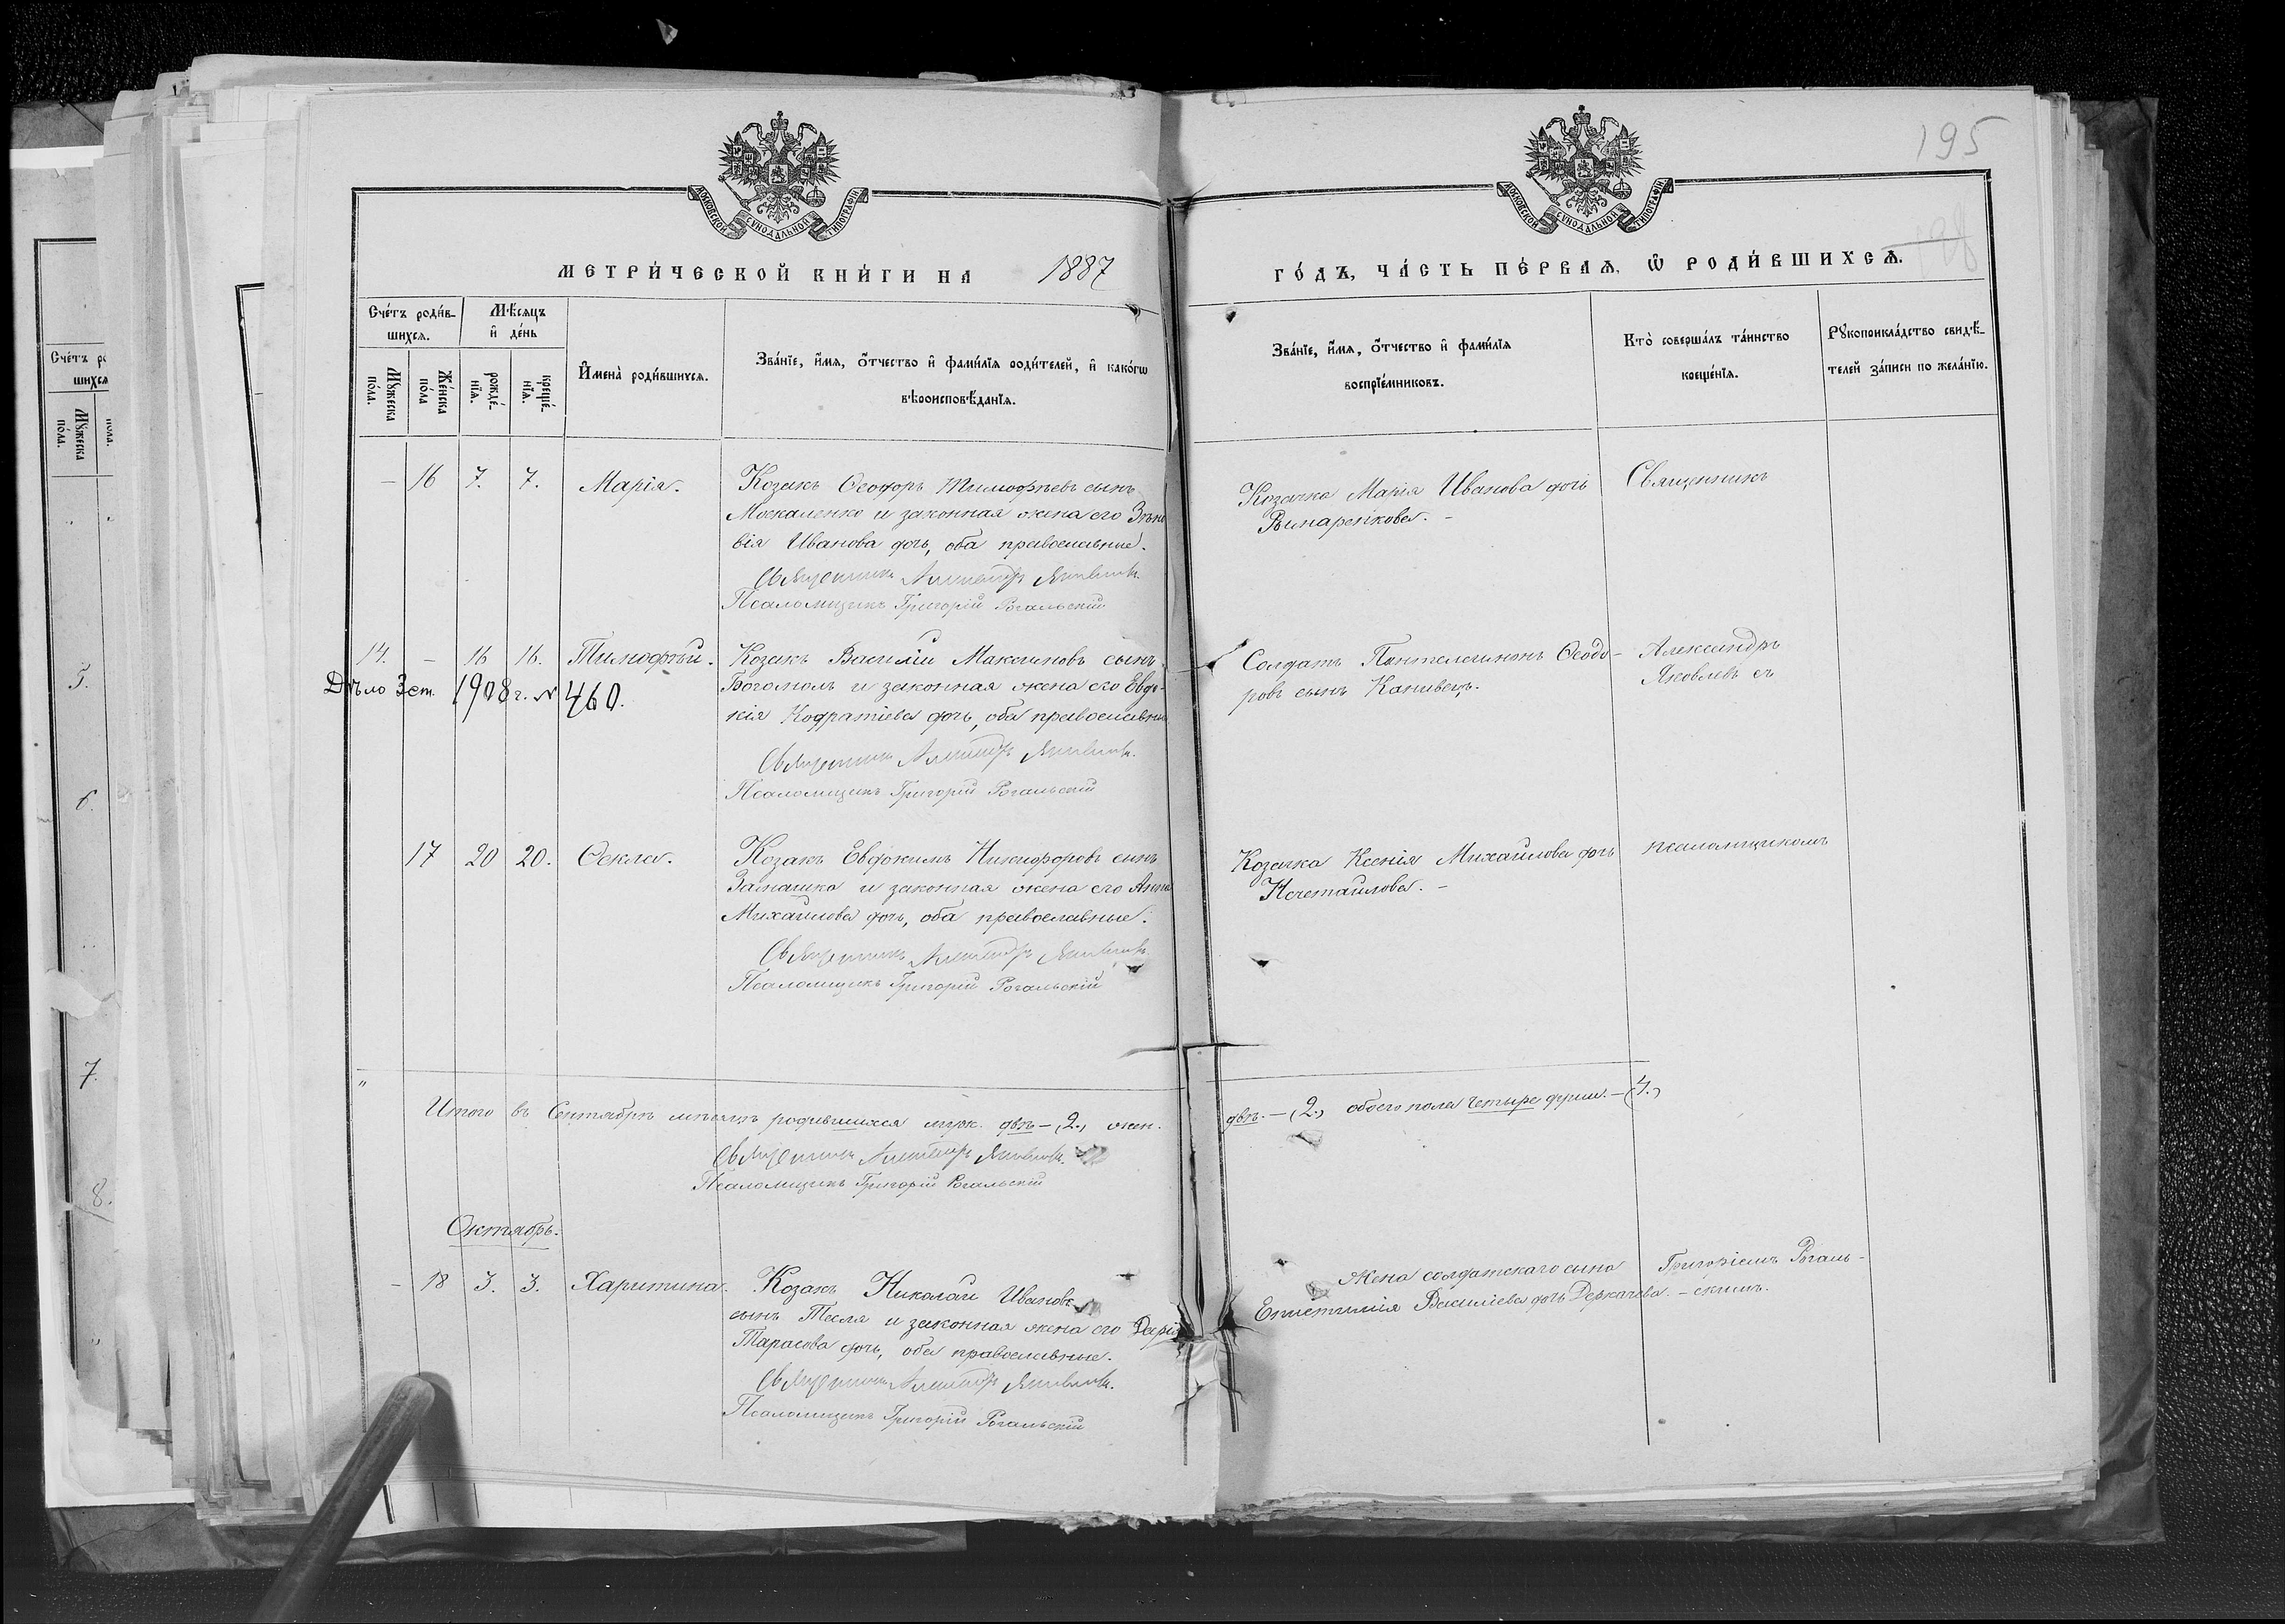 195
МОСКОВСКОЙ СѴНОДАЛЬНОЙ ТИПОГРАФІИ
МОСКОВСКОЙ СѴНОДАЛЬНОЙ ТИПОГРАФІИ
МЕТРИ́ЧЕСКОЙ КНИ́ГИ НА 1887 ГО́ДЪ, ЧА́СТЬ ПЕ́РВАѦ, Ѿ РОДИ́ВШИХСѦ.
Сче́тъ роди́в-
шихсѧ.
Мѣ́сѧцъ
и҆ де́нь
Мꙋ́жеска
по́ла.
Же́нска
по́ла
рожде́-
нїѧ.
креще́-
нїѧ.
И҆мена̀ роди́вшихсѧ.
Зва́нїе, и҆́мѧ, ѻ҆́тчество и҆ фами́лїѧ роди́телей, и҆ како́гѡ
вѣроисповѣ́данїѧ.
Зва́нїе, и҆́мѧ, ѻ҆́тчество и҆ фами́лїѧ
воспрїе́мниковъ.
Кто̀ соверша́лъ та́инство
креще́нїѧ.
Рꙋкоприкла́дство свидѣ́-
телей за́писи по жела́нїю.
Сче́тъ ро
шихсѧ
Мꙋ́жеска
по́ла.
5.
6.
7.
8.
– 16 7. 7. Марія. Козакъ Ѳеодоръ Тимофѣевъ сынъ
Москаленко и законная жена его Зѣно
вія Иванова дочь, оба православные.
Священникъ Александръ Яковлевъ.
Псаломщикъ Григорій Рогальскій
Козачка Марія Иванова дочь
Винаренкова. –
Священникъ
14. – 16 16. Тимофѣй. Козакъ Василій Максимовъ сынъ
Богомолъ и законная жена его Евдо-
кія Кодратіева дочь, оба православные
Дѣло 3 ст. 1908 г. № 460.
Священникъ Александръ Яковлевъ.
Псаломщикъ Григорій Рогальскій
Солдатъ Пантелеимонъ Ѳеодо-
ровъ сынъ Канивецъ.
Александръ
Яковлевъ съ
17 20 20. Ѳекла. Козакъ Евдокимъ Никифоровъ сынъ
Замашко и законная жена его Анна
Михайлова дочь, оба православные.
Священникъ Александръ Яковлевъ.
Псаломщикъ Григорій Рогальскій
Козачка Ксенія Михайлова дочь
псаломщикомъ
Итого въ Сентябрѣ мѣсяцѣ родившихся муж. двѣ – (2.) жен. двѣ. – (2.) обоего пола четыре души. – (4.)
Священникъ Александръ Яковлевъ.
Псаломщикъ Григорій Рогальскій
Октябрь.
– 18 3. 3. Харитина. Козакъ Николай Ивановъ
сынъ Тесля и законная жена его Дарія
Тарасова дочь, оба православные.
Священникъ Александръ Яковлевъ.
Псаломщикъ Григорій Рогальскій
Жена солдатскаго сына
Епистимія Василіева дочь Деркачева. –
Григоріемъ Рогаль-
скимъ.